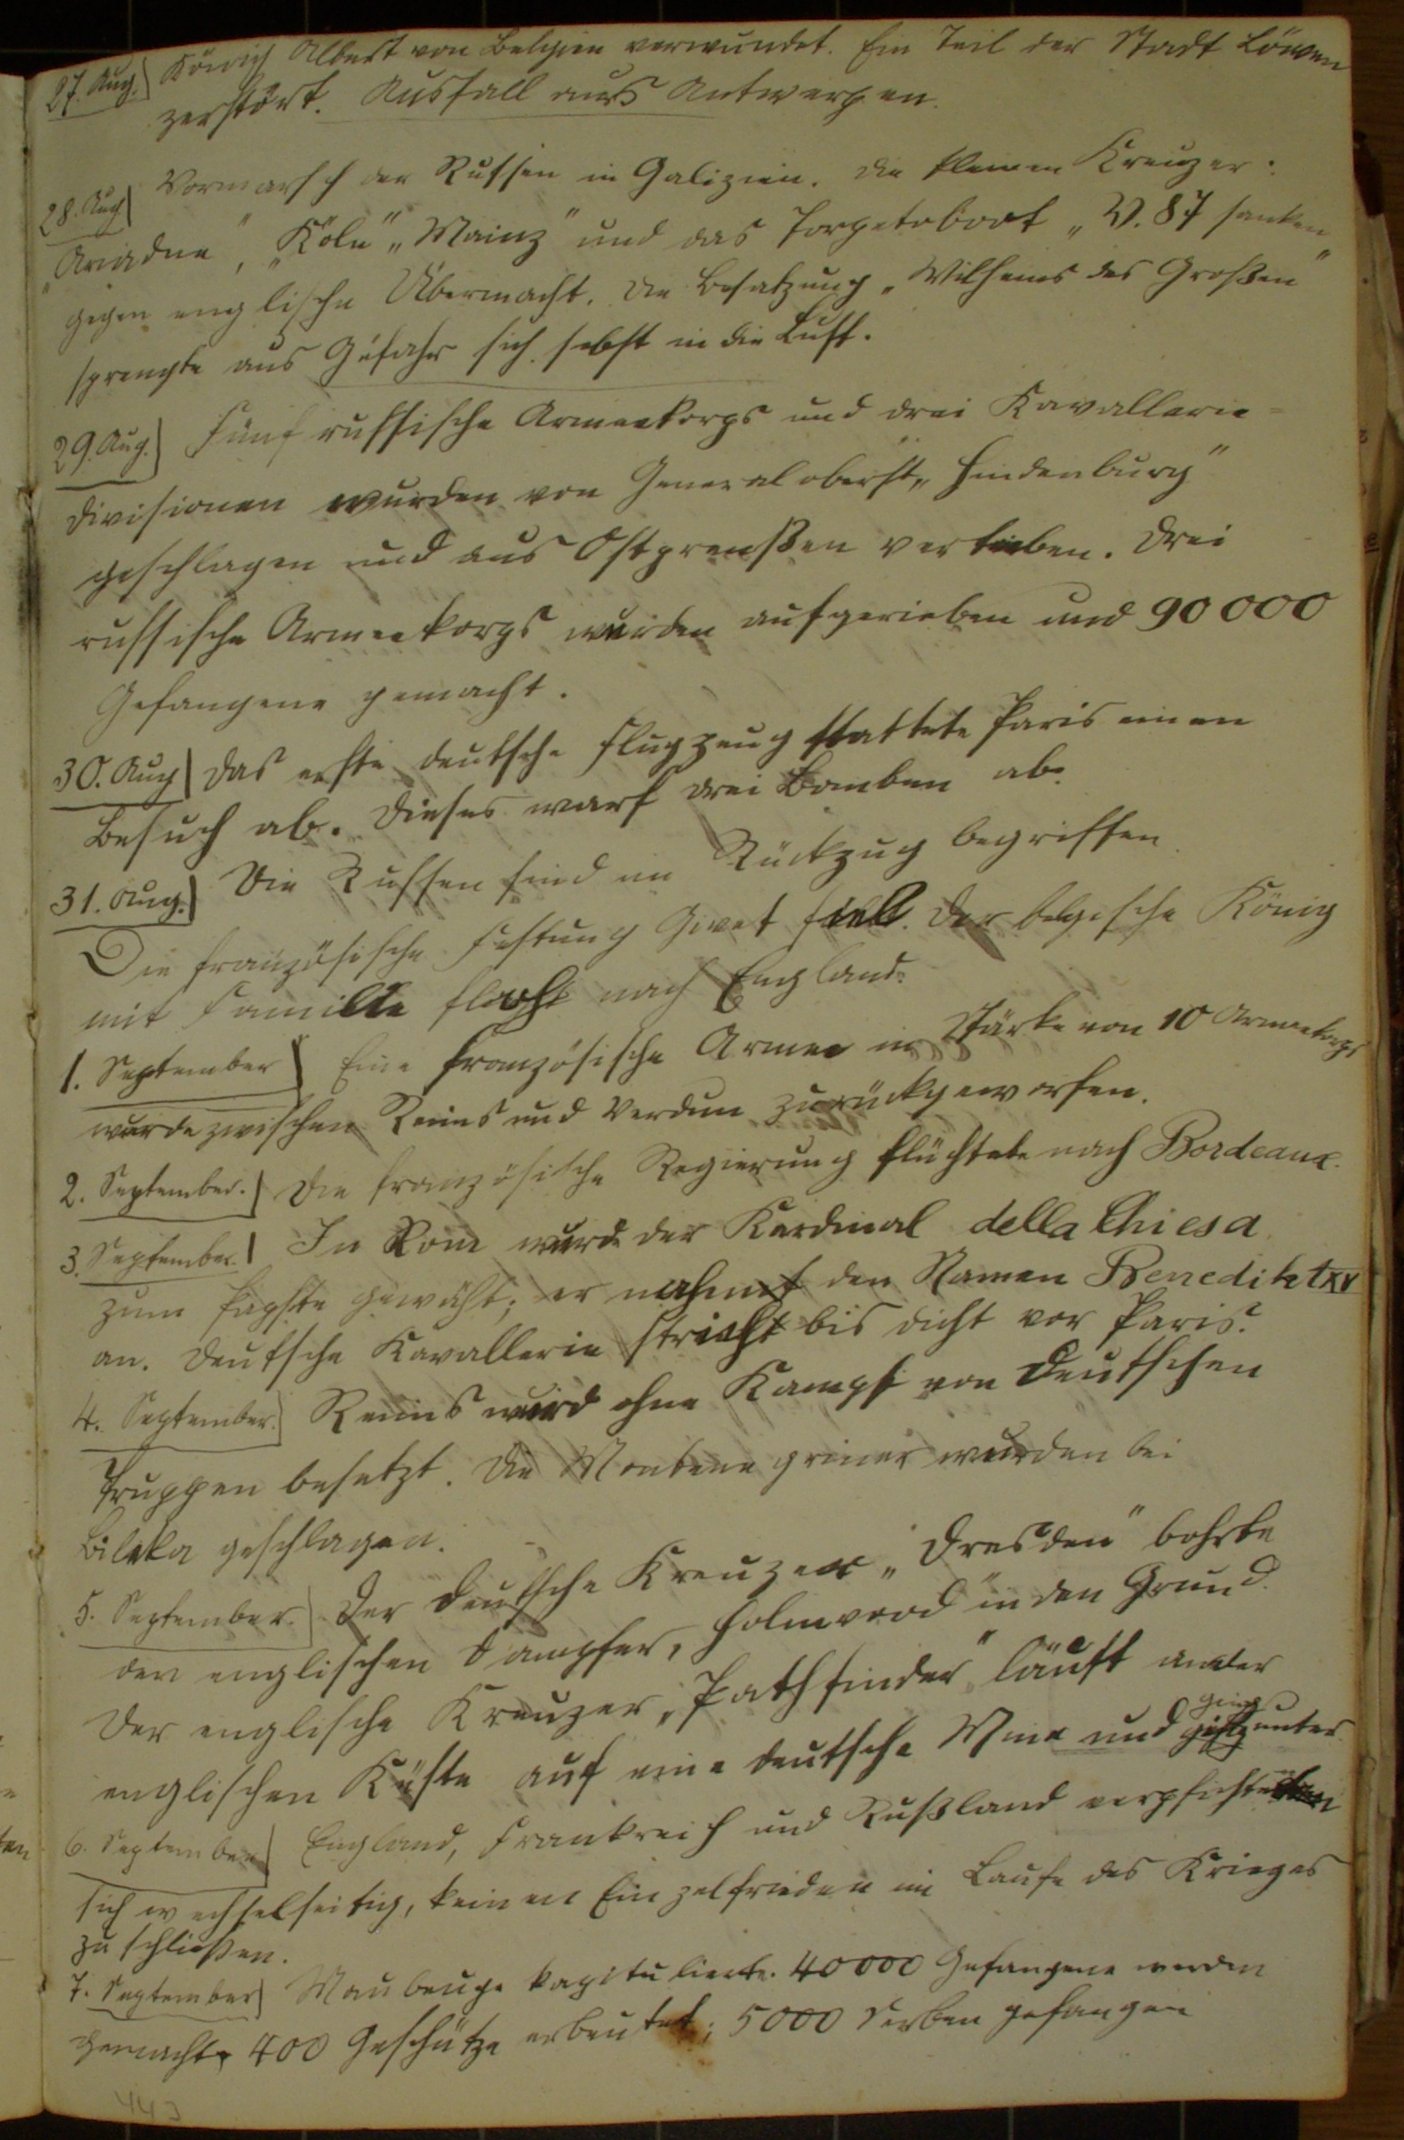 27. Aug. König Albert von Belgien verwundet. Ein Teil der Stadt Löwen
zerstört. Ausfall aus Antwerpen.
28. Aug Vormarsch der Russen in Galizien. Die kleinen Kreuzer:
"Ariadne", "Köln" "Mainz" und das Torpetoboot "V. 87 sanken
gegen englische Übermacht. Die Besatzung "Wilhems des Großen"
sprengte aus Gefahr sich sebst in die Luft.
29. Aug. Fünf russische Armeekorps und drei Kavallerie=
divisionen wurden von Generaloberst "Hindenburg"
geschlagen und aus Ostpreußen vertieben. Drei
russische Armeekorps wurden aufgerieben und 90000
Gefangene gemacht.
30. Aug Das erste deutsche Flugzeug stattete Paris einen
Besuch ab. Dieses warf drei Bomben ab.
31. Aug. Die Russen sind im Rückzug begriffen.
Die französische Festung Givet fiel. Der belgische König
mit Familie floh nach England.
1. September Eine französische Armee in Stärke von 10 Armeekorps
wurde zwischen Reims und Verdun zurückgeworfen.
2. September. Die französische Regierung flüchtete nach Bordeaux.
3. September. In Rom wurde der Kardinal della Chiesa
zum Papste gewählt; er nahm den Namen Benedikt XV
an. Deutsche Kavallerie streift bis dicht vor Paris.
4. September. Reims wird ohne Kampf von Deutschen
Truppen besetzt. Die Montenegriner wurden bei
Bileka geschlagen.
5. September. Der deutsche Kreuzer "Dresden" bohrte
den englischen Dampfer, Holmwood" in den Grund.
Der englische Kreuzer "Pathfinder" läuft an der
englischen Küste auf eine deutsche Mine und ging unter.
6. September England, Frankreich und Rußland verpflichteten
sich wechselseitig, keinen Einzelfrieden im Laufe des Krieges
zu schließen.
7. September Maubeuge kapitulierte. 40000 Gefangene werden
gemacht 400 Geschütze erbeutet; 5000 Serben gefangen
443